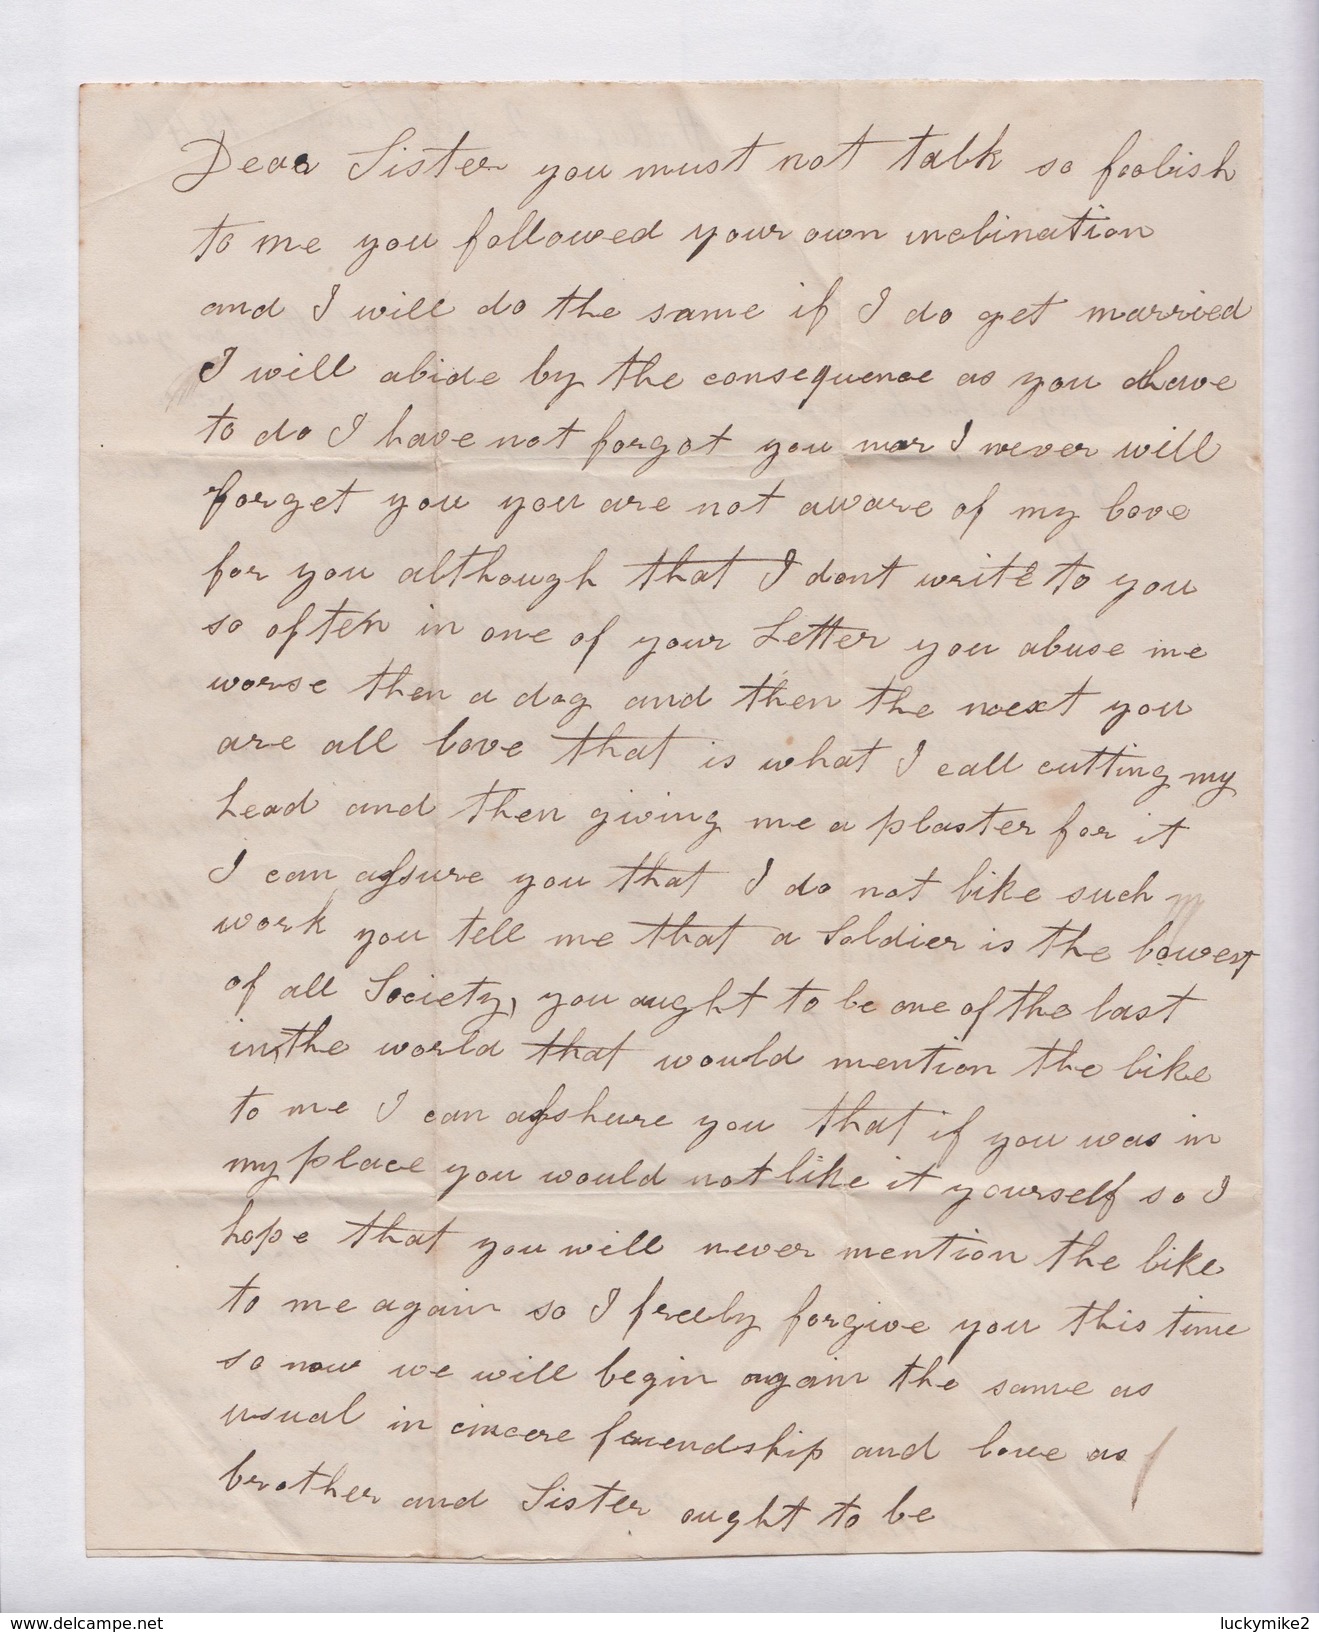 Dear Sister you must not talk so foolish
to me you followed your own inclination
and I will do the same if I do get married
I will abide by the consequence as you have
to do I have not forgot you nor I never will
forget you you are not aware of my love
for you although that I dont write to you
so often in one of your Letter you abuse me
worse then a dog and then the next you
are all love that is what I call cutting my
head and then giving me a plaster for it
I can assure you that I do not like such
work you tell me that a Soldier is the lowest
of all Society, you aught to be one of the last
in the world that would mention the like
to me I can asshure you that if you was in
my place you would not like it yourself so I
hope that you will never mention the like
to me again so I freely forgive you this time
so now we will begin again the same as
usual in cincere friendship and love as
brother and Sister ought to be
www.delcampe.net
luckymike2